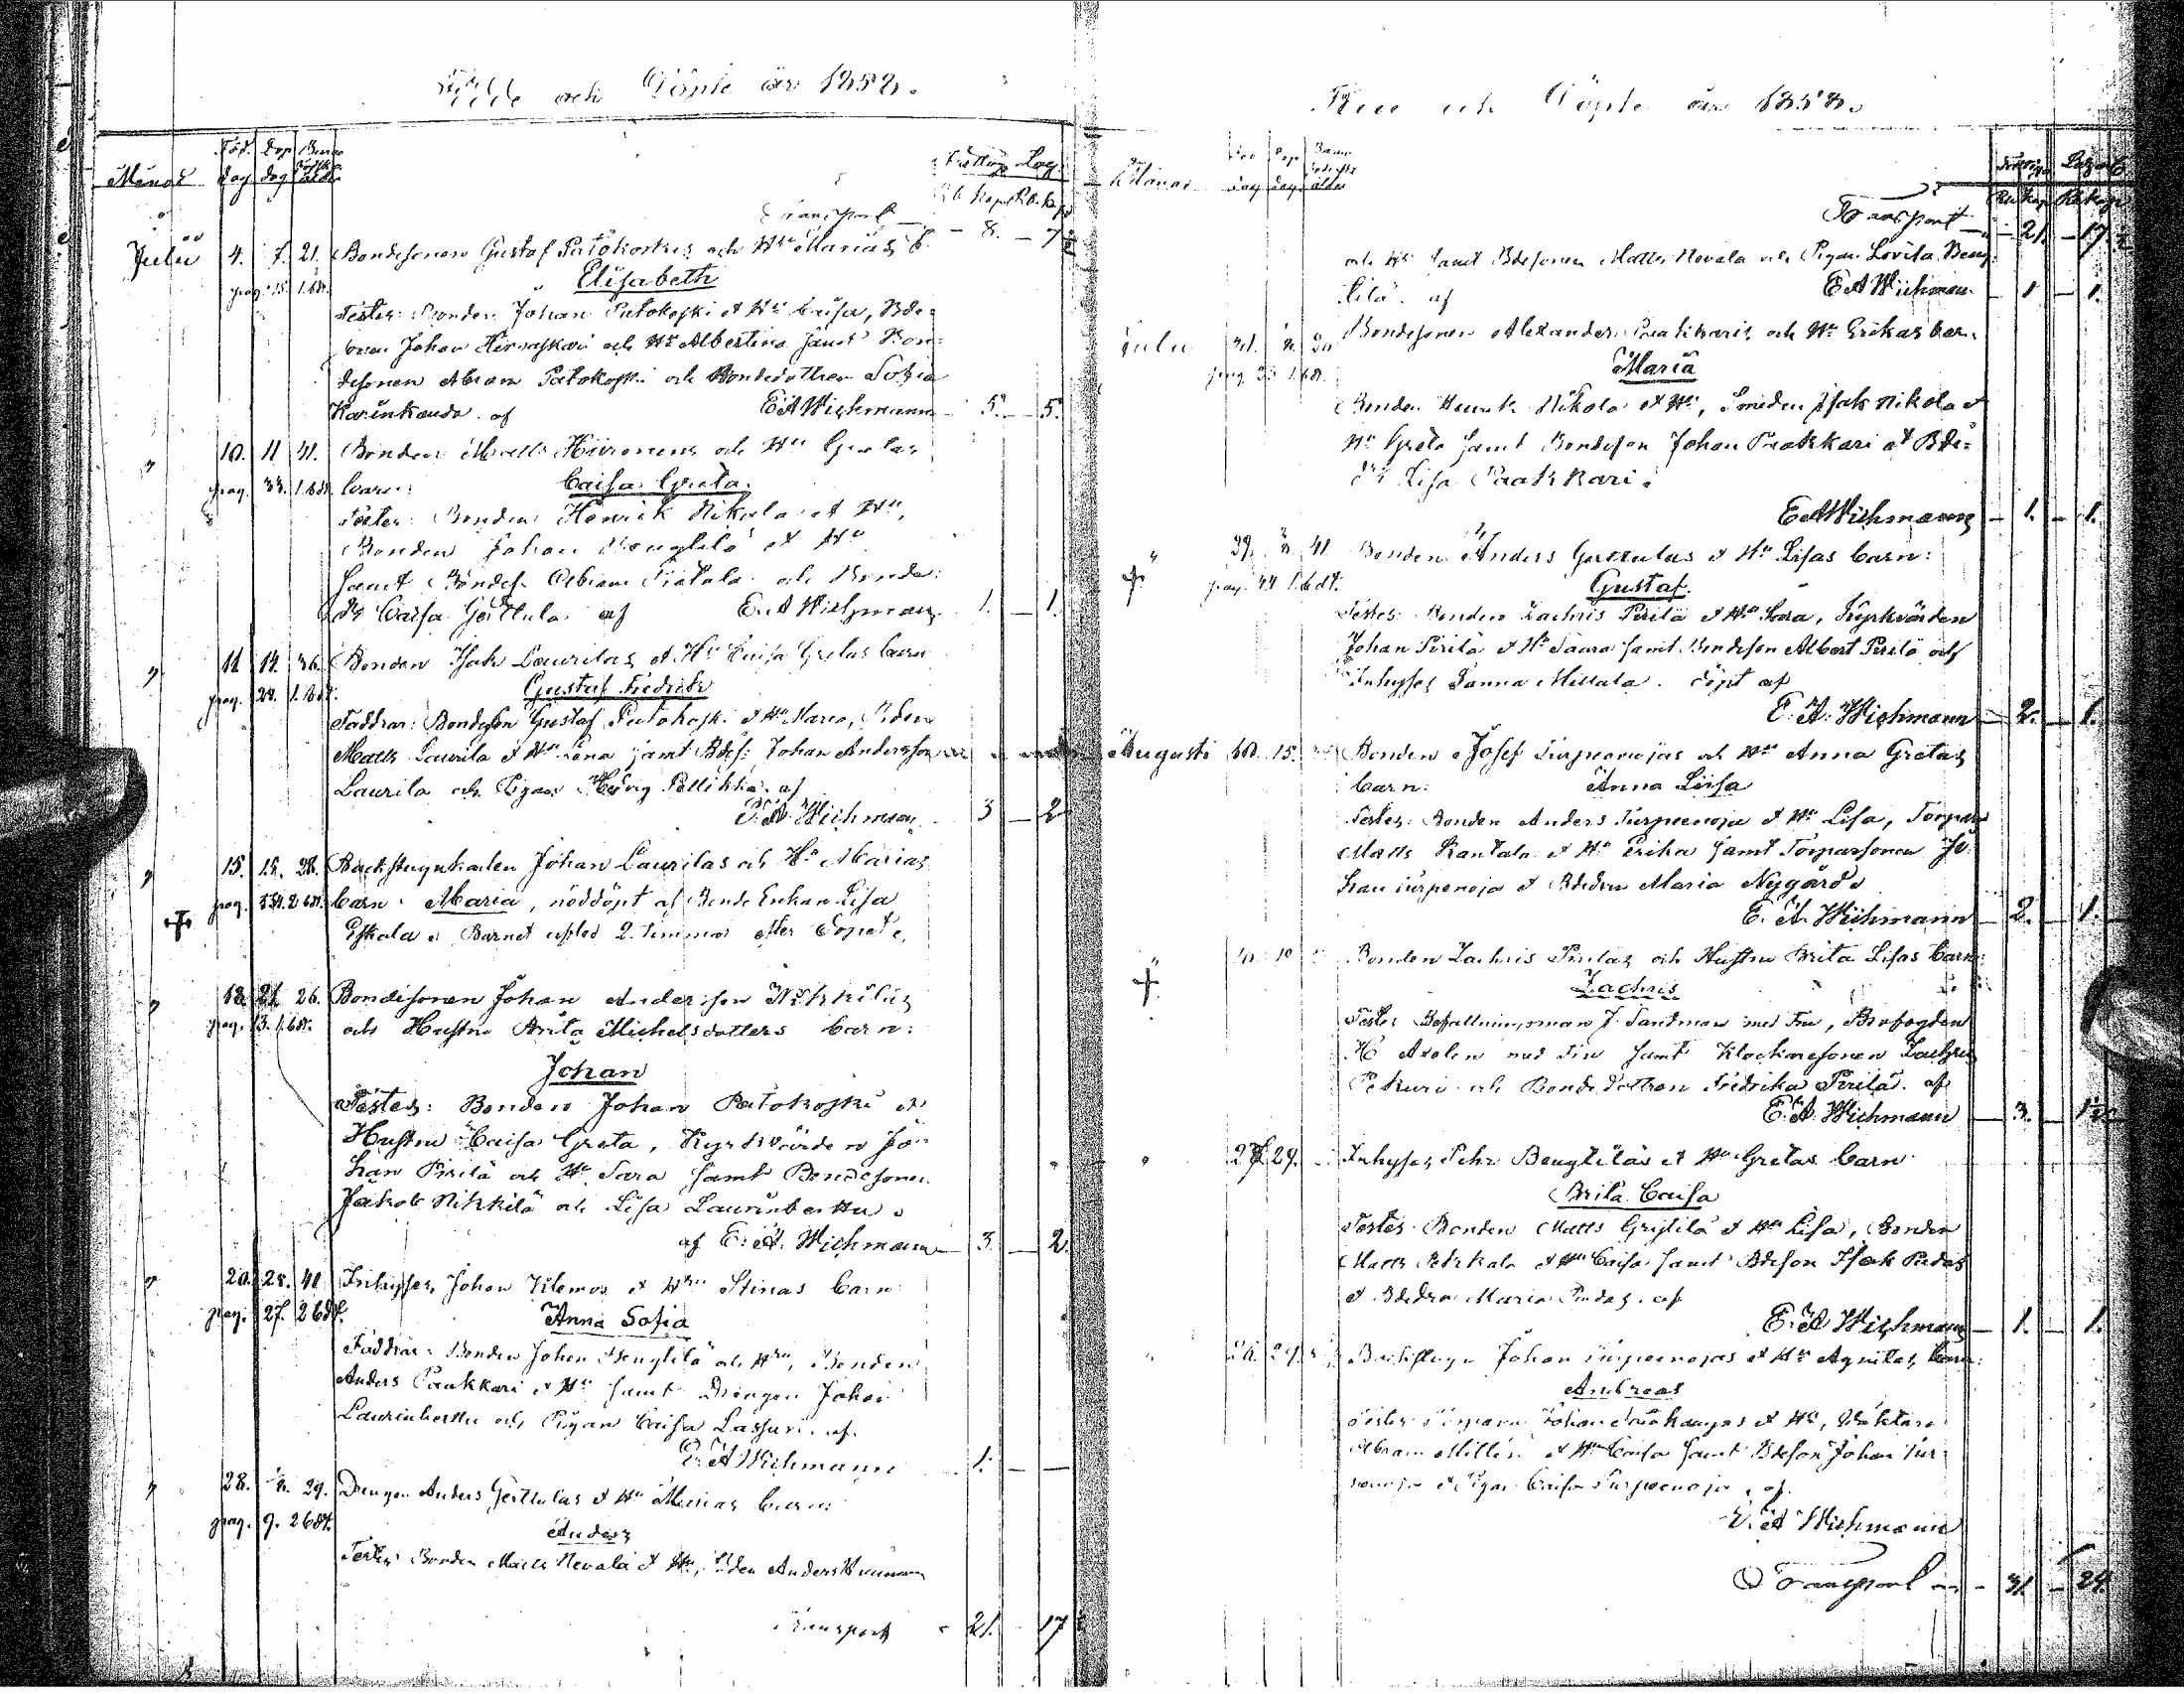 Födde och Döpte år 1858.
Månad Föd. dag Dop dag Barna Födsk. ålder Fattig Lag.
Rb. Kop. Rb. Kop.
Transport — 8. — 7
Julii 4. 7. 21. Bondesonen Gustaf Patokoskis och Hu Marias b.
Elisabeth
prag. 15. 1.6dt.
Testes: Bonden Johan Patokoski et Hu Caisa, Bde-
sonen Johan Hirvaskari och Hu Albertina samt Bon-
desonen Abram Patokoski och Bondedottren Sofia
Karinkanda. af E A Wichmann 5. — 5.
" 10. 11 41. Bonden Matts Hiironens och Hu Gretas
prag. 33. 1.6dt. barn: Caisa Greta.
Testes: Bonden Henrik Nikola et Hu,
Bonden Johan Bengtilä et Hu
samt Bondes. Abram och Bonde-
dr Caisa Gerttula af E. A Wichmann 1. — 1.
" 11 14. 36. Bonden Isak Laurilas et Hu Caisa Gretas barn
prag. 28. 1.6dt. Gustaf Fredrik
Faddrar: Bondeson Gustaf Patokoski et Hu Maria, Bden
Matts Laurila et Hu Lena samt Bdes: Johan Andersson
Laurila och Pigan Hedvig Pellikka. af
E. A. Wichmann 3 — 2
" 15. 15. 28. Backstugukarlen Johan Laurilas och Hu Marias
+ prag. 2 6dt. barn: Maria, nöddöpt af Bonde Enkan Lisa
Eskola. Barnet afled 2. timmar efter Dopet.
" 18. 21 26. Bondesonen Johan Andersson Nikkiläs
prag. 13. 1.6dt. och Hustru Brita Michelsdotters barn:
Johan
Testes: Bonden Johan Patokoski et
Hustru Caisa Greta, Kyrkvärden Jo-
han Pirilä och Hu Sara samt Bondesonen
Jakob Nikkilä och Lisa Laurinberttu.
af E. A. Wichmann — 3. — 2.
" 20. 25. 41 Inhyses Johan Klemos et Hu Stinas barn
prag. 27. 2 6dt. Anna Sofia
Faddrar: Bonden Johan Bengtilä och Hu, Bonden
Anders Paakkari et Hu samt Drängen Johan
Laurinberttu och Pigan Caisa Lassuri. af
E. A Wichmann 1. — —
" 28. 29. Drengen Anders Gerttulas et Hu Marias barn
prag. 9. 2 6dt. Anders
Testes Bonden Matts Nevala et Hu, Bden Anders
Transport - 21. 17
Födde och Döpte år 1858.
Månad dag dag ålder Fattig
Rb. Kop. Rb. Kop.
Transport — 21. — 17.
och Hu samt Bdesonen Matts Nevala och Pigan Lovisa Beng-
tilä. af E A Wichmann — 1 — 1.
Julii 31. Bondesonen Alexander Paakkaris och Hu Erikas barn
prag. 35 1.6dt. Maria
Bonden Henrik Nikola et Hu, Smeden Isak Nikola et
Hu Greta samt Bondeson Johan Paakkari et Bde-
dr Lisa Paakkari.
E A Wichmann — 1. — 1.
" 29. 41. Bonden Anders Gerttulas et Hu Lisas barn:
+ prag. 44 1.6dt. Gustaf.
Testes Bonden Zachris Pirilä et Hu Sara, Kyrkvärden
Johan Pirilä et Hu Saara samt Bondeson Albert Pirilä och
Inhyses Sanna Mettala. döpt af
E. A. Wichmann — 2. — 1.
Augusti 10. 15. Bonden Josef Turpeenojas och Hu Anna Gretas
barn: Anna Lisa
Testes: Bonden Anders Turpeenoja et Hu Lisa, Torpar
Matts Rantala et Hu Erika samt Torparsonen Jo-
han Turpenoja et Bdedrn Maria Nygård.
E. A. Wichmann — 2. — 1.
" 10. Bonden Zachris Pirilas och Hustru Brita Lisas barn:
+ Zachris
Testes Befallningsman J. Sandman med Fru, Brofogden
Axelin med Fru samt Klockaresonen Zachris
Petkuri och Bonde Dottren Fredrika Pirilä. af
E. A. Wichmann — 3.
" 27 29. Inhyses Pehr Bengtiläs et Hu Gretas barn
Brita Caisa
Testes Bonden Matts et Hu Lisa, Bonden
Matts et Hu Caisa samt Bdeson Isak Pudas
et Bdedrn Maria Pudas. af
E. A Wichmann — 1. — 1.
" 29. Backstugu Johan Turpeenojas et Hu Agnetas barn:
Andreas
Testes Johan et Hu,
Abram Millén et Hu Caisa samt Bdeson Johan Tur-
penoja et Pigan Caisa Turpeenoja, af
E. A Wichmann
Transport — 31. — 24.